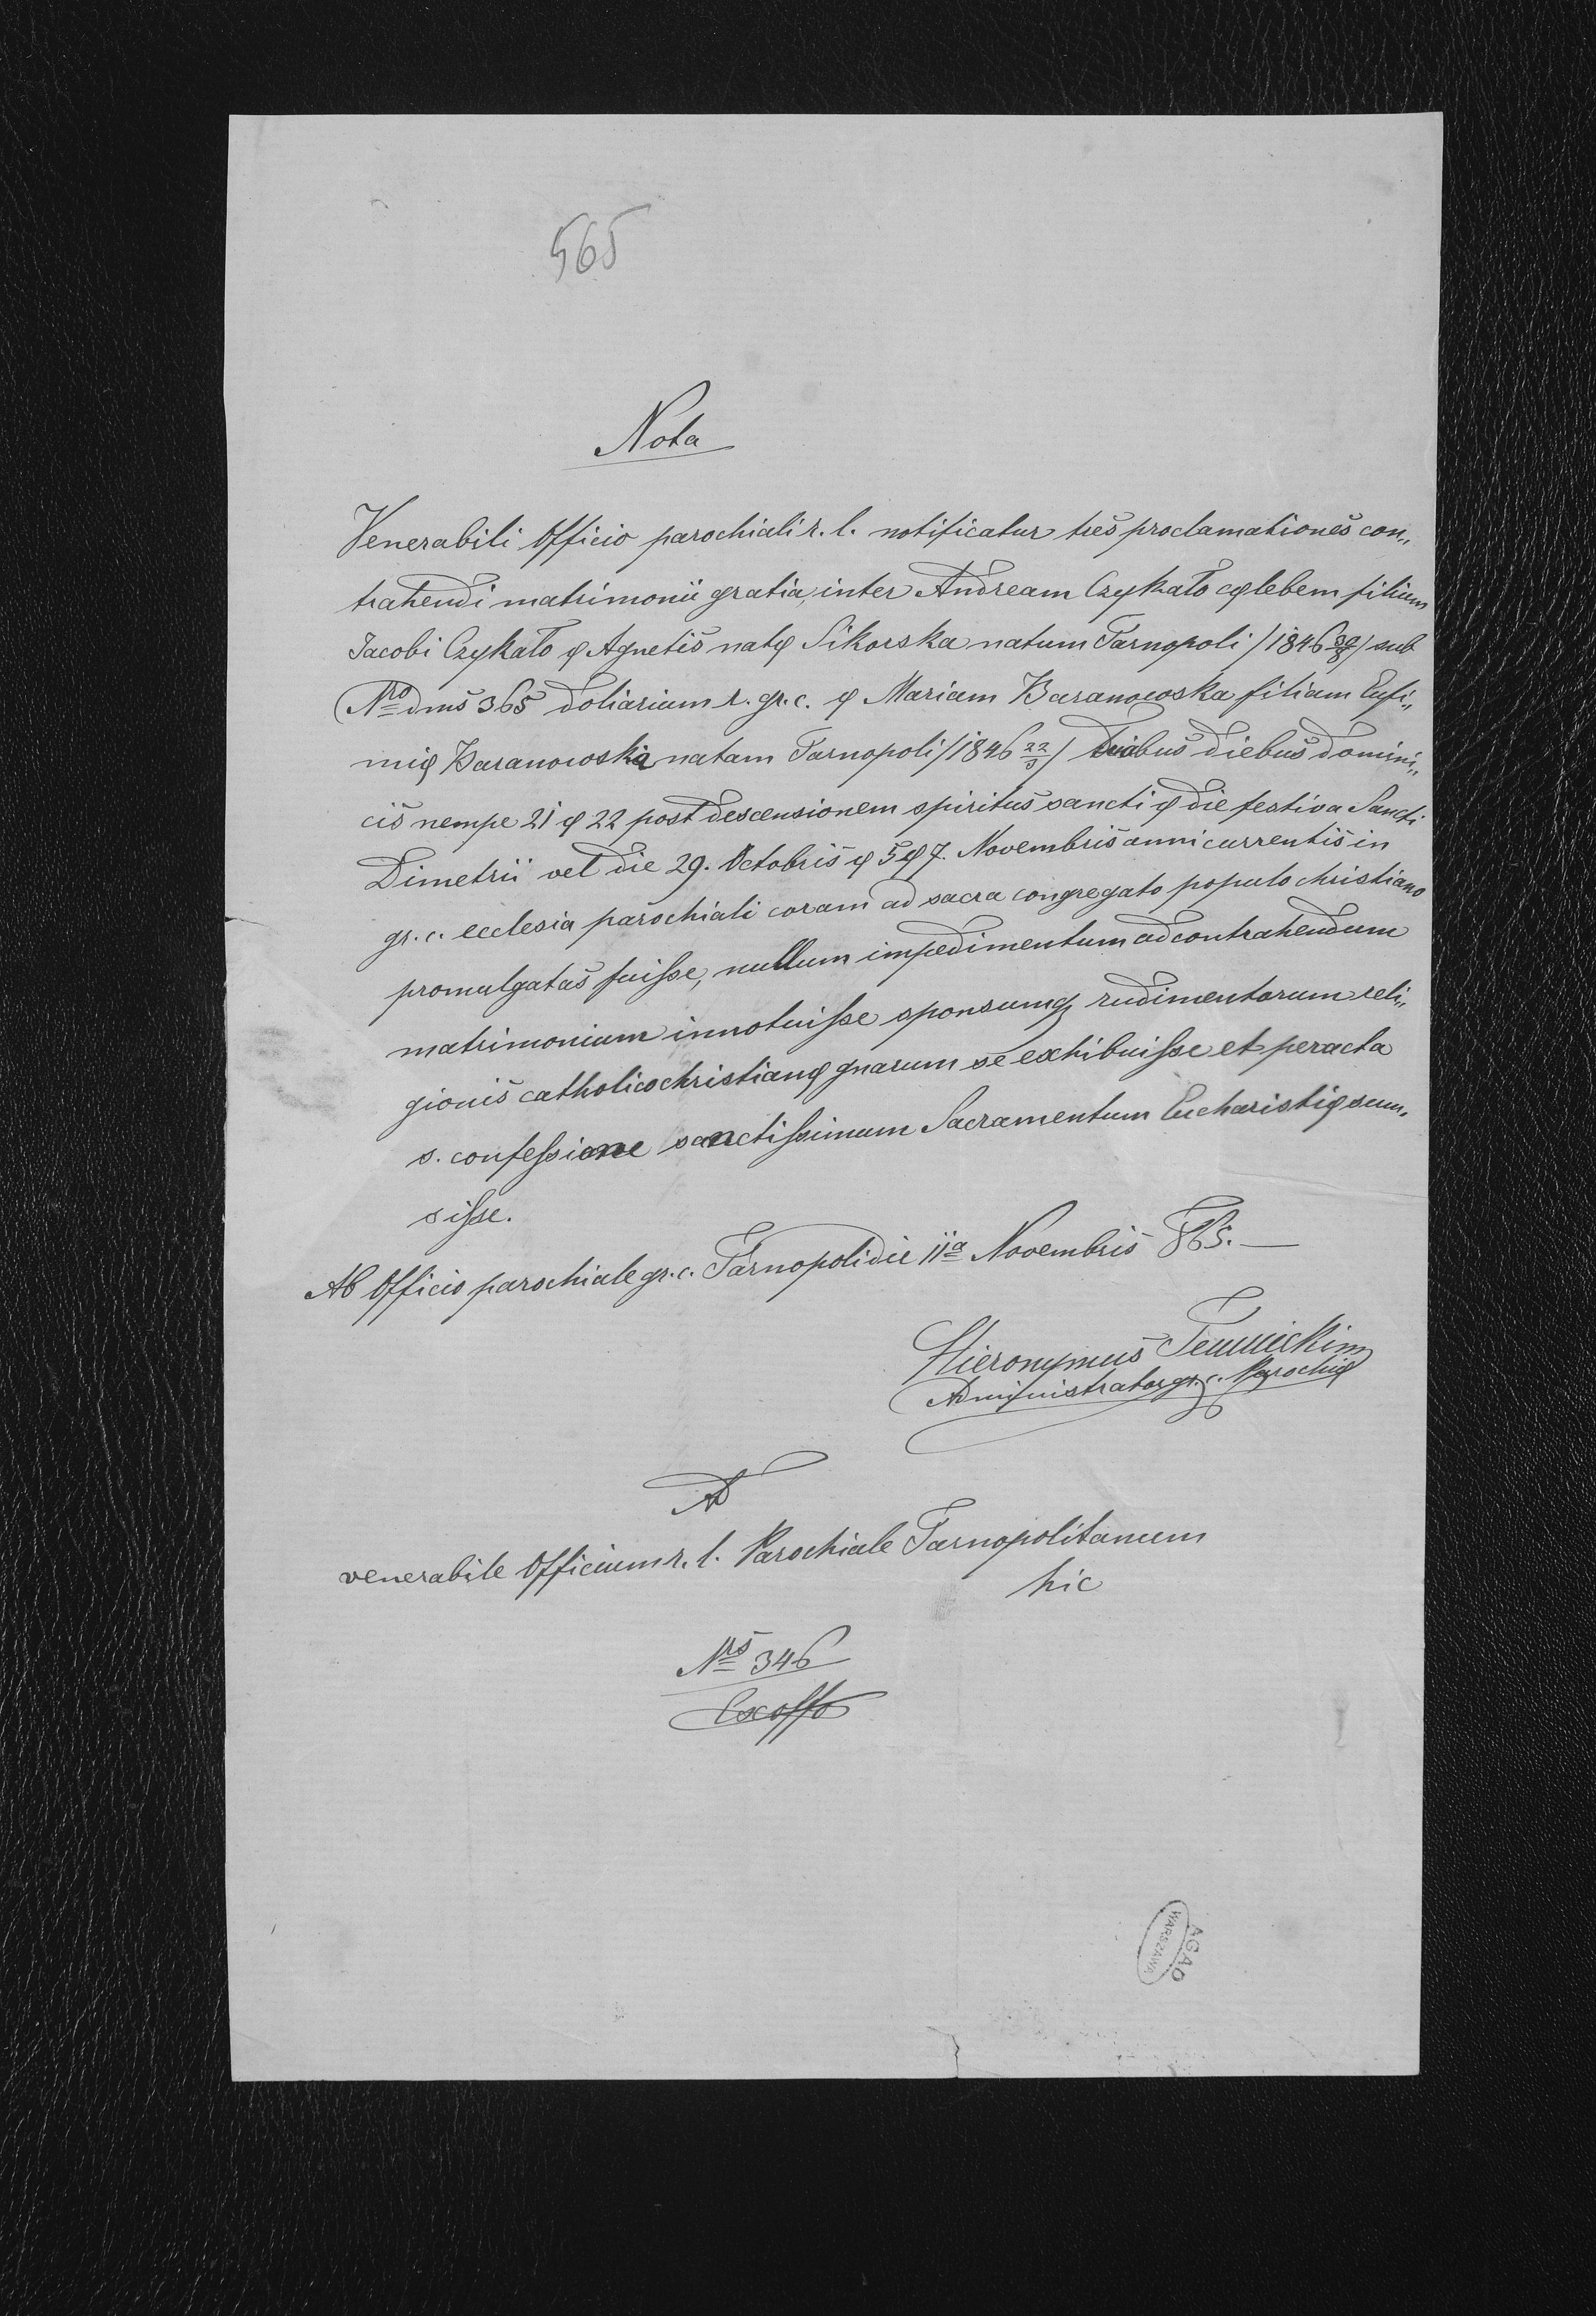 565
Nota
Venerabili Officio parochiali r. l. notificatur tres proclamationes con„
trahendi matrimonii gratia, inter Andream Czykało cęlebem filium
Jacobi Czykało & Agnetis natę Sikorska natum Tarnopoli /1846 30/8/ sub
Nro dms 365 doliarium r. gr. c. & Mariam Baranowska filiam Eufi„
mię Baranowska natam Tarnopoli /1846 22/3/ duabus diebus domini„
cis nempe 21 & 22 post descensionem spiritus sancti & die festiva Sancti
Dimetrii vel die 29. Octobris & 5 & 7. Novembris anni currentis in
gr. c. ecclesia parochiali coram ad sacra congregato populo christiano
promulgatas fuisse, nullum impedimentum ad contrahendum
matrimonium innotuisse sponsumq rudimentorum reli„
gionis catholicochristianę gnarum se exhibuisse et peracta
s. confessione sanctissimum Sacramentum Eucharistię sum„
sisse.
Ab Officio parochiale gr. c. Tarnopoli die 11a Novembris 865. —
Hieronymus
Administrator gr. c. Parochię
Ad
venerabile Officium r. l. Parochiale Tarnopolitanum
hic
Nrs 346
Exoffo
AGAD
WARSZAWA